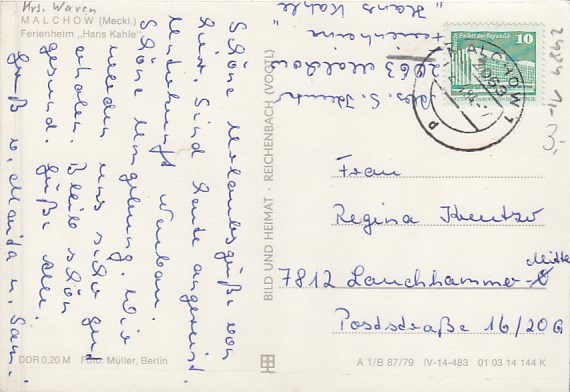 Krs. Waren
MALCHOW (Meckl.)
Ferienheim „Hans Kahle"
Schöne Urlaubsgrüße von
hier. Sind heute angereist.
Unterkunft wunbar.
Schöne Umgebung. Wir
werden uns sicher gut
erholen. Bleib schön
gesund. Grüße alle.
Gruß v. Manda u. Sam.
Abs. S.
2063 Malchow
Ferienheim
„Hans Kahle"
P. Palast der Republik 10
DDR
MALCHOW 1
2063
Frau
Regina
7812 Lauchhammer-Mitte
Poststraße 16/206
BILD UND HEIMAT · REICHENBACH (VOGTL)
DDR 0,20 M Foto: Müller, Berlin
A 1/B 87/79 IV-14-483 01 03 14 144 K
3,-